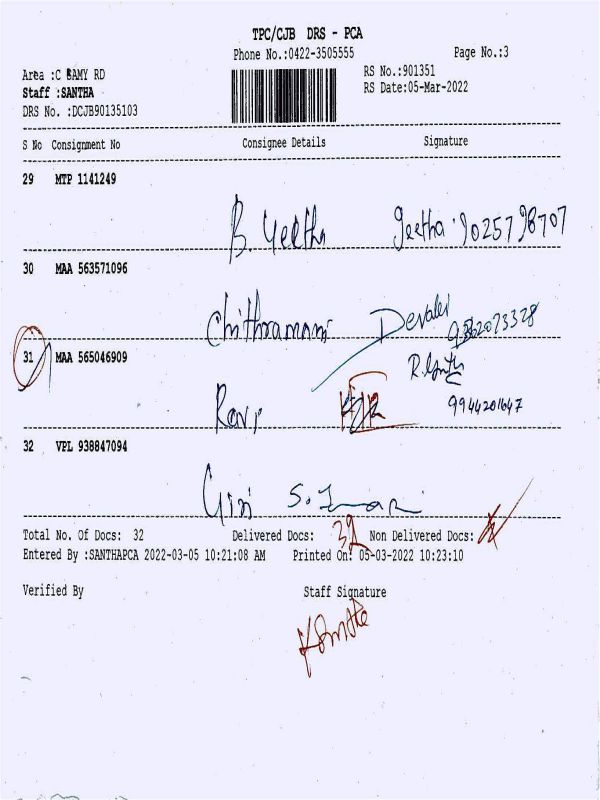 TPC/CJB DRS - PCA
Phone No.:0422-3505555 Page No.:3
Area :C SAMY RD RS No.:901351
Staff :SANTHA RS Date:05-Mar-2022
DRS No. :DCJB90135103
S No Consignment No Consignee Details Signature
29 MTP 1141249
B. Geetha Geetha. 9025798707
30 MAA 563571096
Chithramani Devaki 9362073328
31 MAA 565046909
Ravi 9944201647
32 VPL 938847094
Giri
Total No. Of Docs: 32 Delivered Docs: 32 Non Delivered Docs:
Entered By :SANTHAPCA 2022-03-05 10:21:08 AM Printed On: 05-03-2022 10:23:10
Verified By Staff Signature